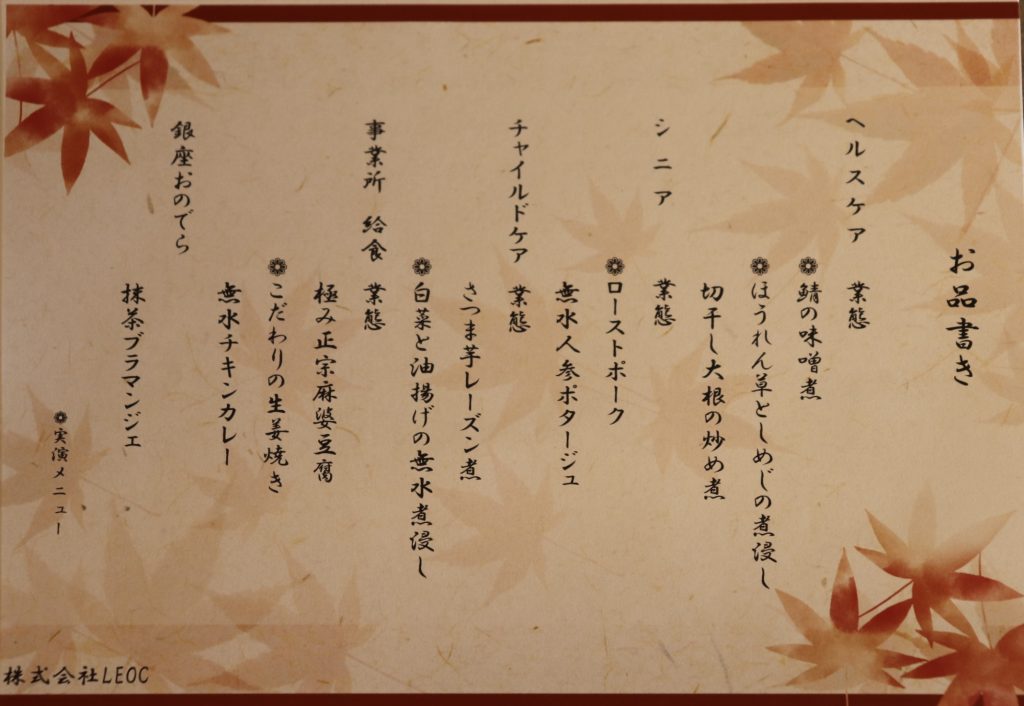 お品書き
ヘルスケア 業態
❁鯖の味噌煮
❁ほうれん草としめじの煮浸し
切干し大根の炒め煮
シニア 業態
❁ローストポーク
無水人参ポタージュ
チャイルドケア 業態
さつま芋レーズン煮
❁白菜と油揚げの無水煮浸し
事業所 給食 業態
極み正宗麻婆豆腐
❁こだわりの生姜焼き
無水チキンカレー
銀座おのでら
抹茶ブラマンジェ
❁実演メニュー
株式会社LEOC